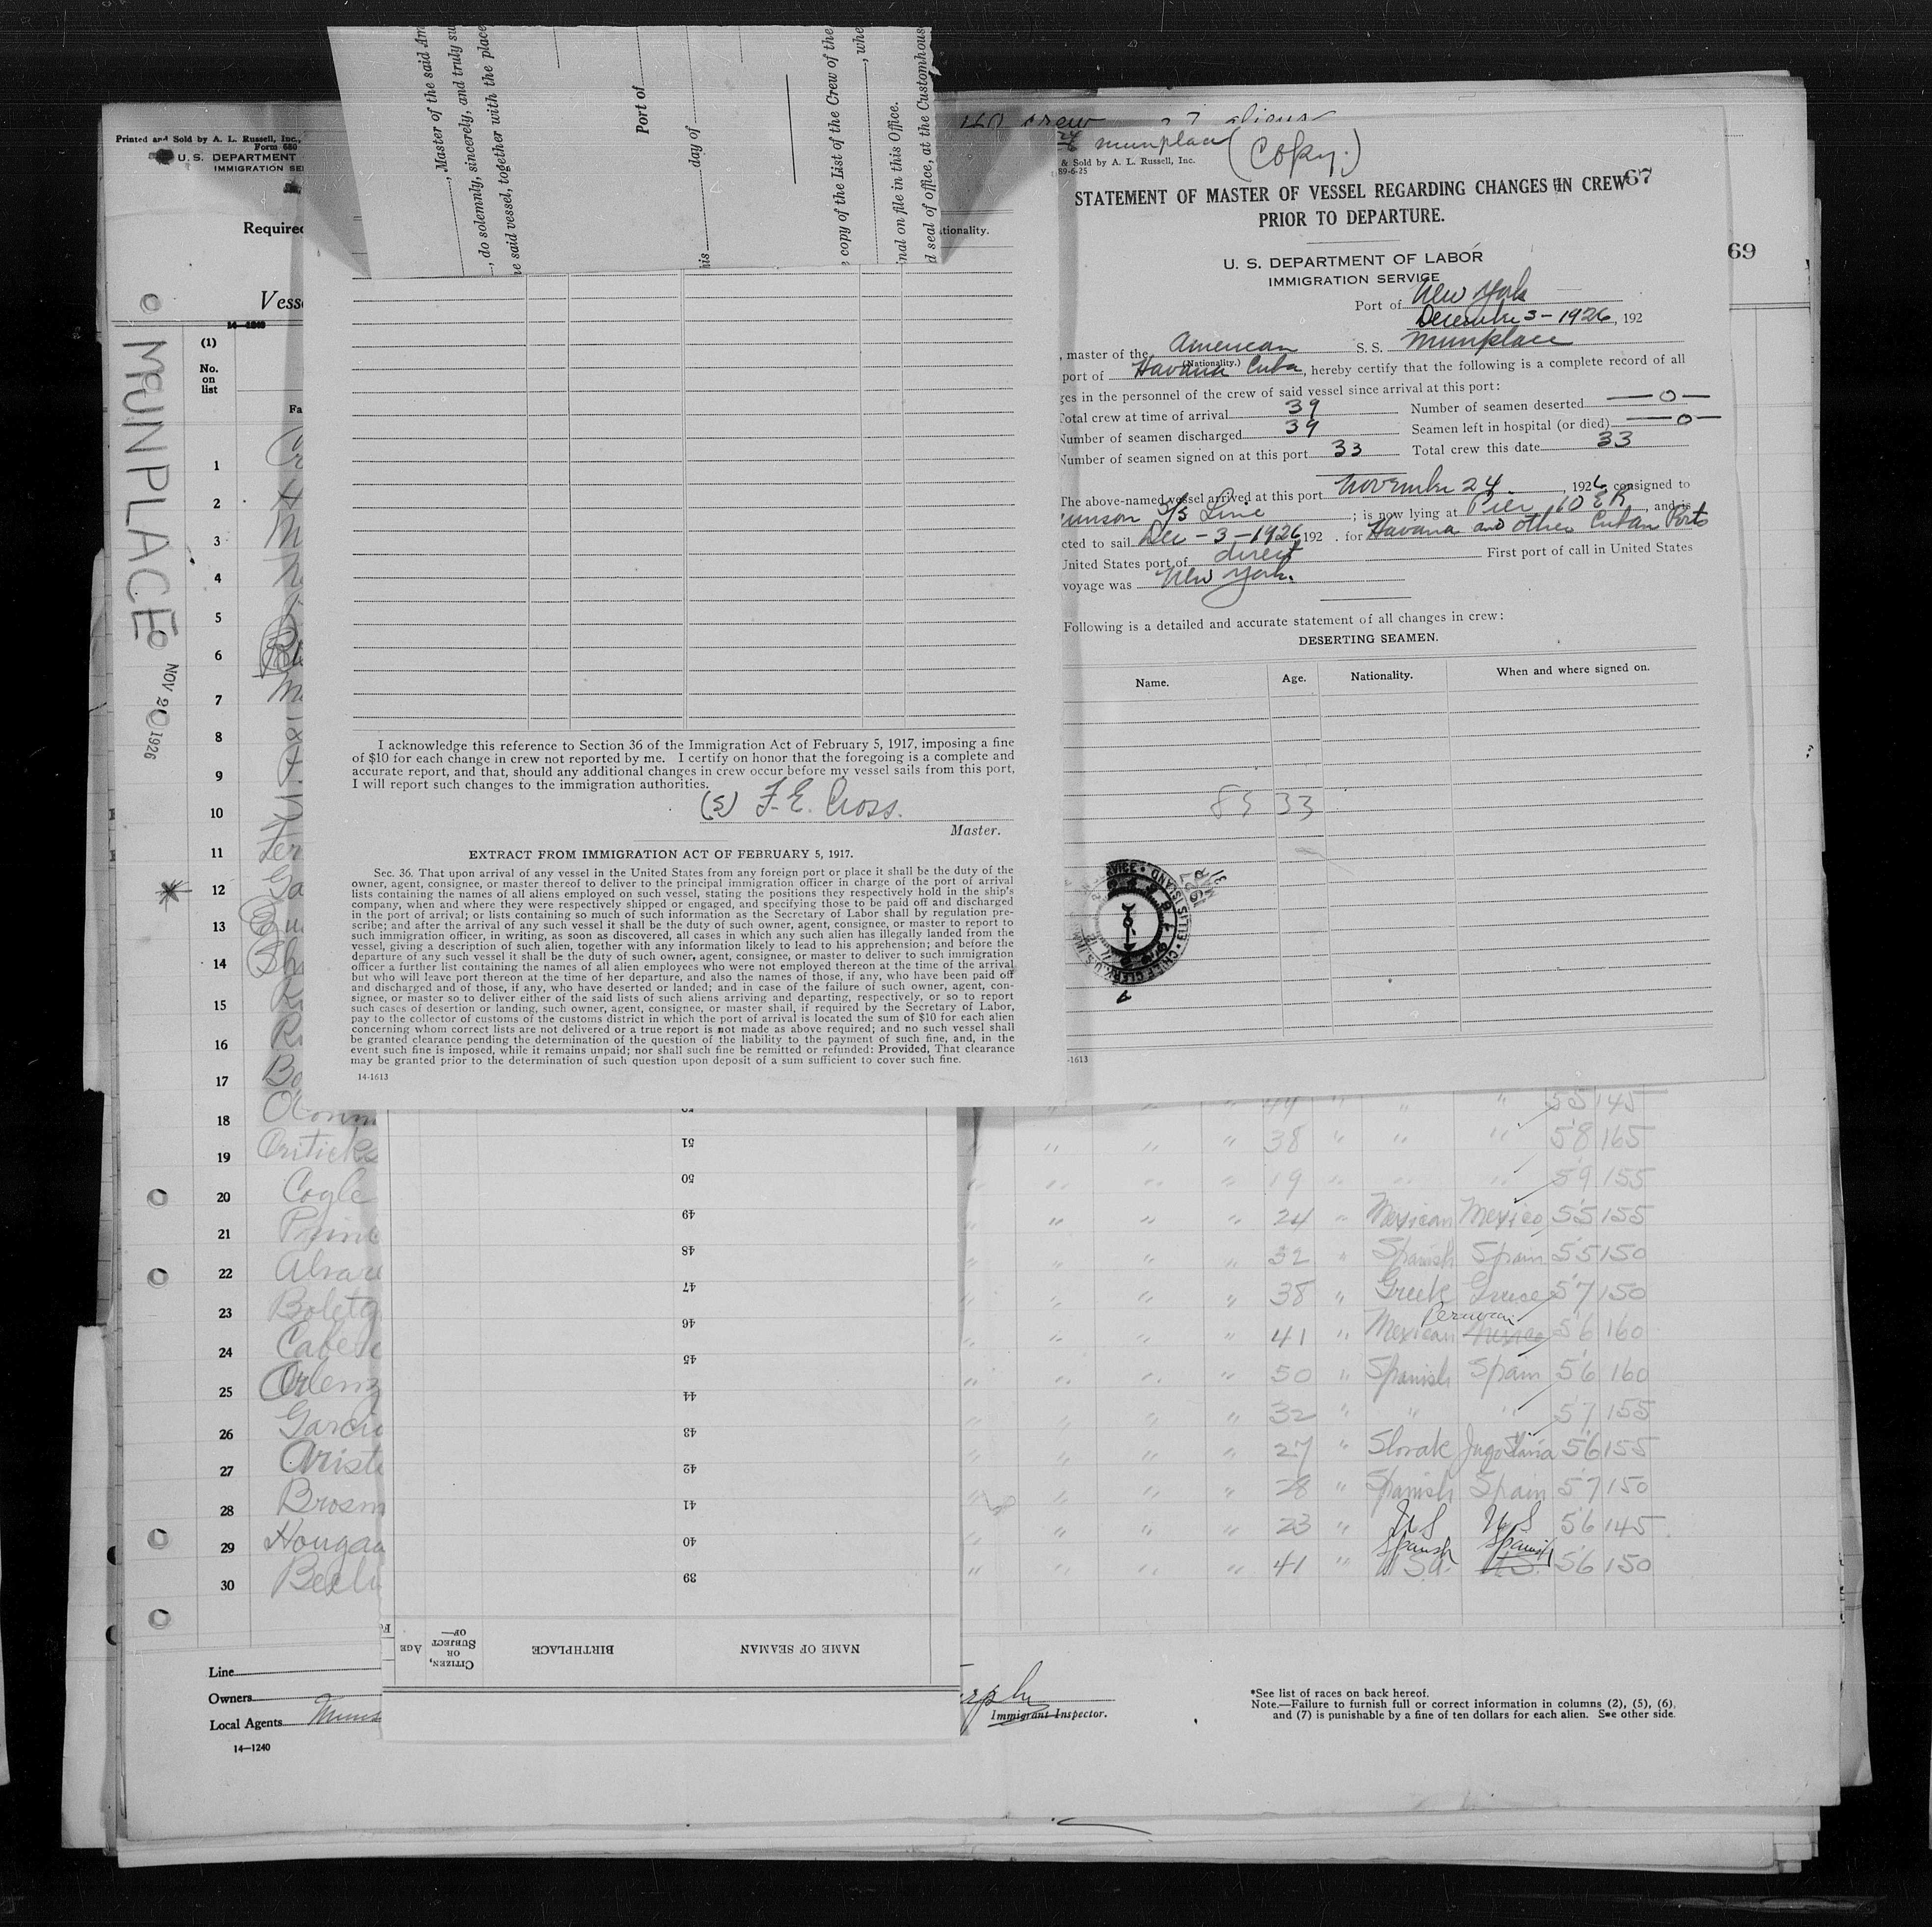 Printed and Sold by A. L. Russell, Inc.,
Form 680
U. S. DEPARTMENT
IMMIGRATION SE
Required
(1)
No.
on
list
MUNPLACE
NOV 2 1926
1
2
3
4
5
6
7
8
9
10
11
12
13
14
15
16
17
18
19 Criticks
20 Cogle
21
22
23
24
25
26
27
28
29
30
Line
Owners
Local Agents Muns
14—1240
, Master of the said Am
, do solemnly, sincerely, and truly su
e said vessel, together with the place
Port of
day of
his
copy of the List of the Crew of the
, whe
nal on file in this Office.
d seal of office, at the Customhous
tionality.
I acknowledge this reference to Section 36 of the Immigration Act of February 5, 1917, imposing a fine
of $10 for each change in crew not reported by me. I certify on honor that the foregoing is a complete and
accurate report, and that, should any additional changes in crew occur before my vessel sails from this port,
I will report such changes to the immigration authorities.
(S) F. E. Cross.
Master.
EXTRACT FROM IMMIGRATION ACT OF FEBRUARY 5, 1917.
Sec. 36. That upon arrival of any vessel in the United States from any foreign port or place it shall be the duty of the
owner, agent, consignee, or master thereof to deliver to the principal immigration officer in charge of the port of arrival
lists containing the names of all aliens employed on such vessel, stating the positions they respectively hold in the ship's
company, when and where they were respectively shipped or engaged, and specifying those to be paid off and discharged
in the port of arrival; or lists containing so much of such information as the Secretary of Labor shall by regulation pre-
scribe; and after the arrival of any such vessel it shall be the duty of such owner, agent, consignee, or master to report to
such immigration officer, in writing, as soon as discovered, all cases in which any such alien has illegally landed from the
vessel, giving a description of such alien, together with any information likely to lead to his apprehension; and before the
departure of any such vessel it shall be the duty of such owner, agent, consignee, or master to deliver to such immigration
officer a further list containing the names of all alien employees who were not employed thereon at the time of the arrival
but who will leave port thereon at the time of her departure, and also the names of those, if any, who have been paid off
and discharged and of those, if any, who have deserted or landed; and in case of the failure of such owner, agent, con-
signee, or master so to deliver either of the said lists of such aliens arriving and departing, respectively, or so to report
such cases of desertion or landing, such owner, agent, consignee, or master shall, if required by the Secretary of Labor,
pay to the collector of customs of the customs district in which the port of arrival is located the sum of $10 for each alien
concerning whom correct lists are not delivered or a true report is not made as above required; and no such vessel shall
be granted clearance pending the determination of the question of the liability to the payment of such fine, and, in the
event such fine is imposed, while it remains unpaid; nor shall such fine be remitted or refunded: Provided, That clearance
may be granted prior to the determination of such question upon deposit of a sum sufficient to cover such fine.
14-1613
crew aliens
munplace (Copy.)
& Sold by A. L. Russell, Inc.
89-6-25
67
69
STATEMENT OF MASTER OF VESSEL REGARDING CHANGES IN CREW
PRIOR TO DEPARTURE.
U. S. DEPARTMENT OF LABOR
IMMIGRATION SERVICE
Port of New York
December 3-1926, 192
, master of the American S. S. Munplace
(Nationality.)
port of Havana Cuba, hereby certify that the following is a complete record of all
ges in the personnel of the crew of said vessel since arrival at this port:
Total crew at time of arrival 39 Number of seamen deserted —0—
Number of seamen discharged 39 Seamen left in hospital (or died) —0—
Number of seamen signed on at this port 33 Total crew this date 33
The above-named vessel arrived at this port November 24, 1926, consigned to
unson S/S Line; is now lying at Pier 10 ER, and is
cted to sail Dec-3-1926 192 . for Havana and other Cuban Ports
United States port of direct First port of call in United States
voyage was New York.
Following is a detailed and accurate statement of all changes in crew:
DESERTING SEAMEN.
Name. Age. Nationality. When and where signed on.
85 33
-1613
51
50
49
48
47
46
45
44
43
42
41
40
39
NAME OF SEAMAN BIRTHPLACE CITIZEN, OR SUBJECT OF— AGE
" " " 44 " " " 55 145
" " " 38 " " " 58 165
" " " 19 " " " 59 155
" " " 24 " Mexican Mexico 55 155
" " " 32 " Spanish Spain 55 150
" " " 38 " Greek Greece 57 150
Peruvian
" " " 41 " Mexican Mexico 56 160
" " " 50 " Spanish Spain 56 160
" " " 32 " " " 57 155
" " " 27 " Slovak Jugo Slavia 56 155
" " " 28 " Spanish Spain 57 150
" " " 23 " US US 56 145
Spanish Spanish
" " " 41 " USA. U.S. 56 150
Immigrant Inspector.
*See list of races on back hereof.
Note.—Failure to furnish full or correct information in columns (2), (5), (6).
and (7) is punishable by a fine of ten dollars for each alien. See other side.